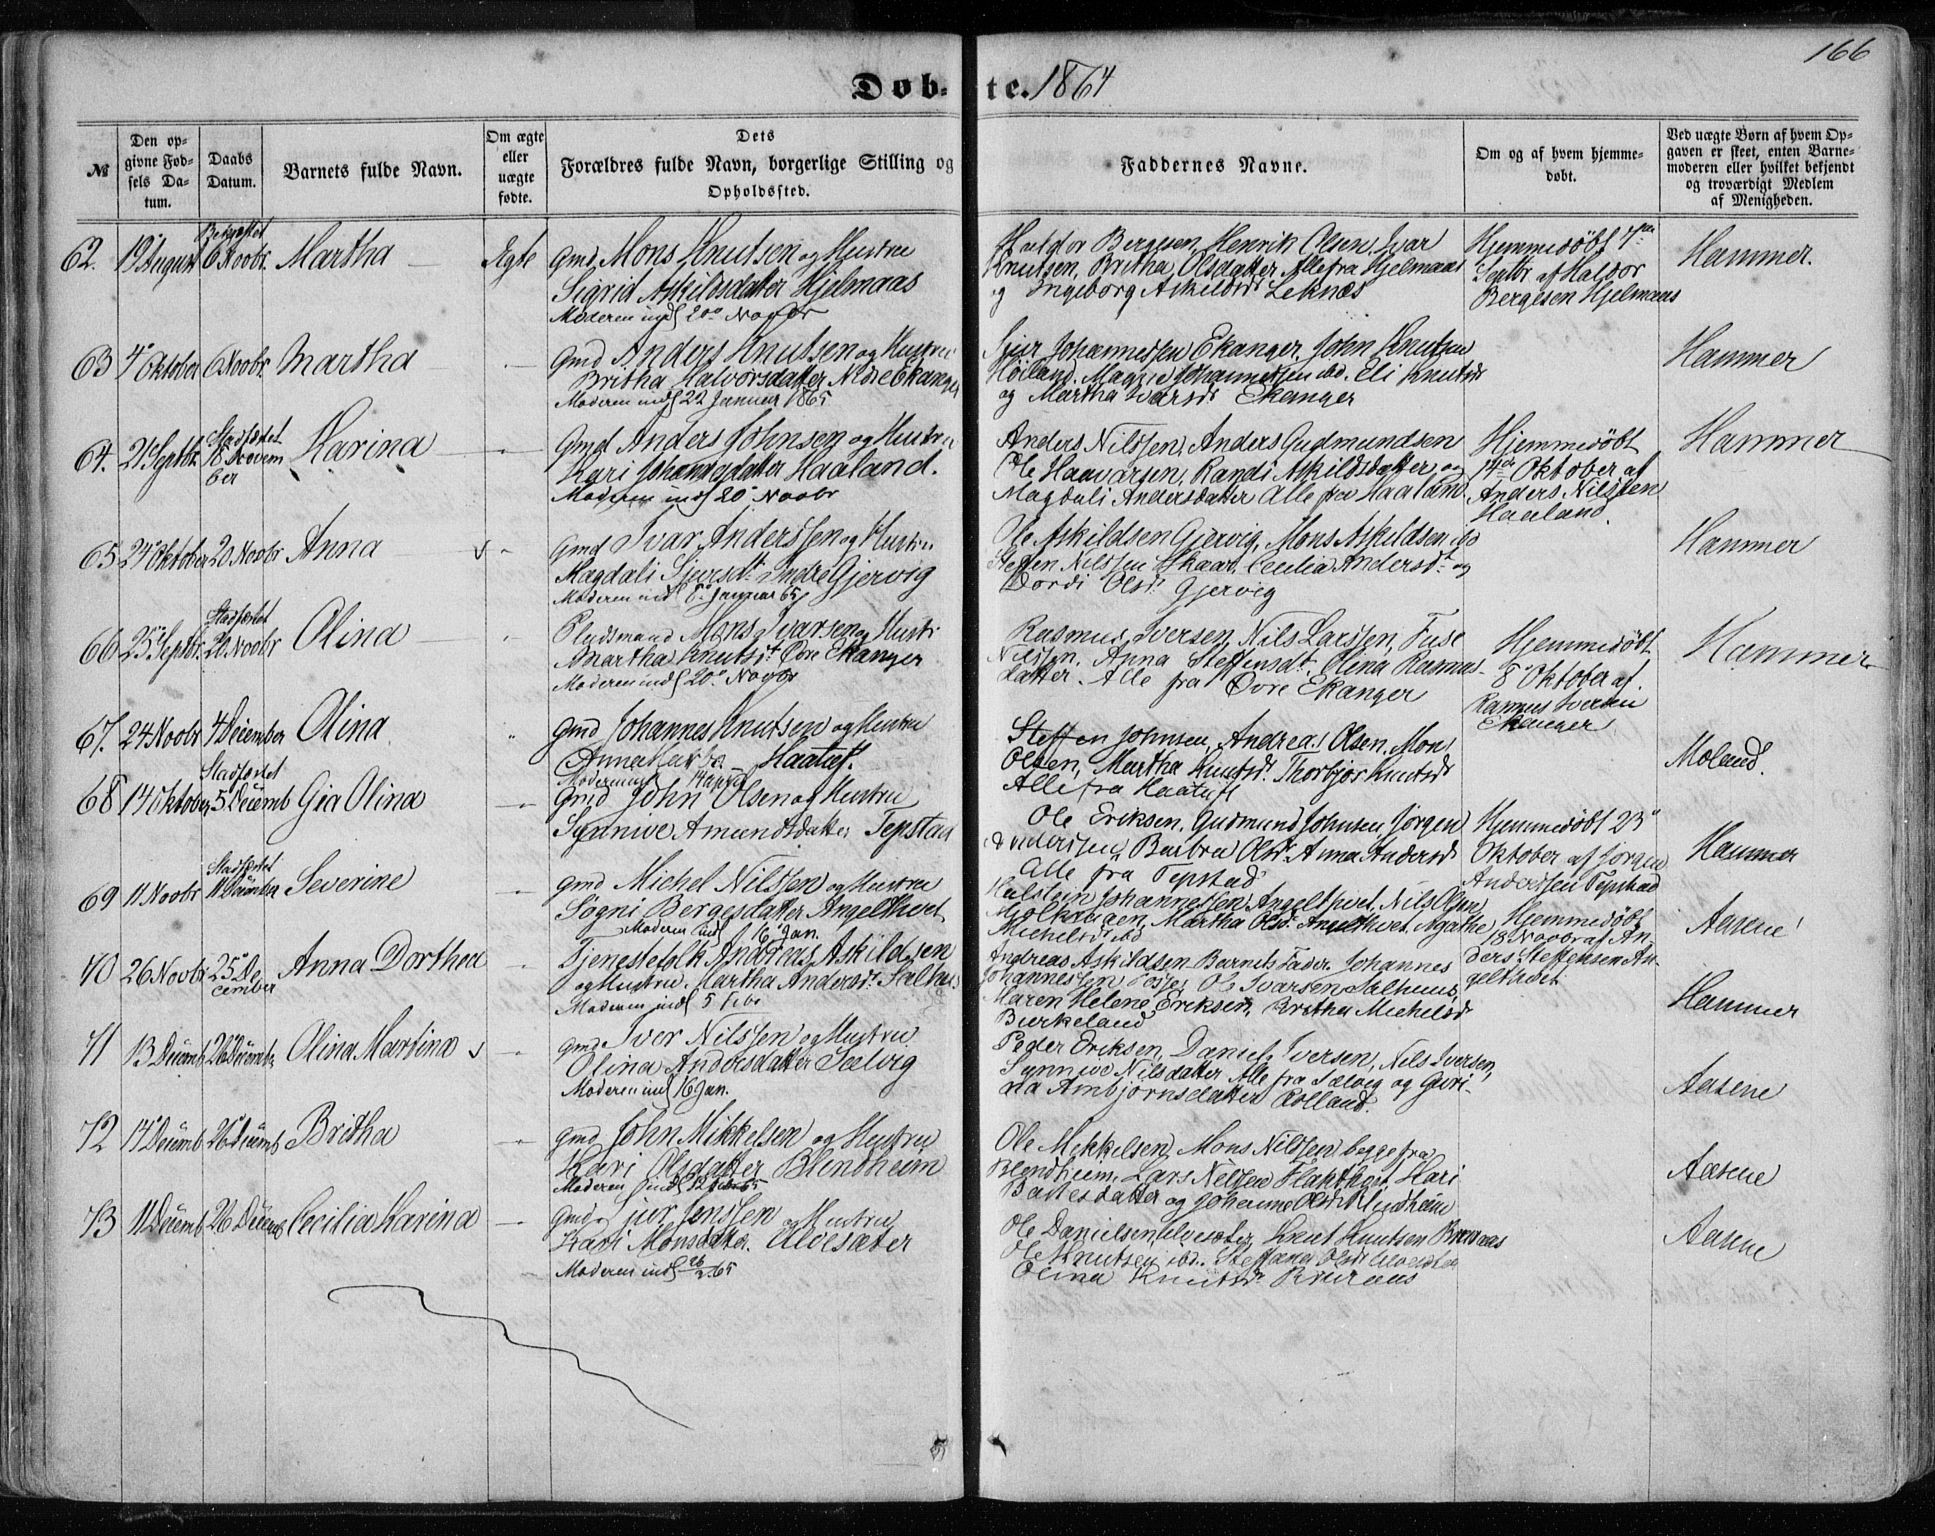 166
Døb- te. 1864
№
Den op-
givne Fød-
sels Da-
tum.
Daabs
Datum.
Barnets fulde Navn.
Om ægte
eller
uægte
fødte.
Dets
Forældres fulde Navn, borgerlige Stilling og
Opholdssted.
Faddernes Navne.
Om og af hvem hjemme-
døbt.
Ved uægte Børn af hvem Op-
gaven er skeet, enten Barne-
moderen eller hvilket bekjendt
og troværdigt Medlem
af Menigheden.
62. 19 August 6 Novbr. Martha Ægte
Gmd Mons Knutsen og Hustru
Sigrid Askildsdatter Hjelmaas
Moderen indl 20 Novbr
Haldor Bergesen, Henrik Olsen, Ivar
Knutsen, Britha Olsdatter Alle fra Hjelmaas
og Ingeborg Askildsd Leknæs
Hjemmedöbt 7
Septbr af Haldor
Bergesen Hjelmaas
Hammer.
63 4 Oktober 6 Novbr. Martha
Gmd Anders Knutsen og Hustru
Britha Halvorsdatter Nedre Ekanger
Moderen indl 22 Januar 1865
Sjur Johannessen Ekanger, John Knutsen
Höiland. Magne Johannessen ibd. Eli Knutsd
og Martha Ivarsd Ekanger
Hammer
64. 21 Septbr. Stadfæstet 18 Novem
ber Karina
Gmd Anders Johnsen og Hustru
Kari Johannesdatter Haaland.
Moderen indl 20 Novbr
Anders Nilssen, Anders Gudmundsen
Ole Haavarsen, Randi Askildsdatter og
Magdali Andersdatter Alle fra Haaland
Hjemmedöbt
14de Oktober af
Anders Nilssen
Haaland.
Hammer
65 24 Oktober 20 Novbr Anna
Gmd Ivar Anderssen og Hustru
Magdali Sjursdt Indre Gjervig
Moderen indl 8 Januar 65
Ole Askildsen Gjervig, Mons Askildsen ibd
Steffen Nilssen Skaar, Cecilia Andersdt og
Dordi Olsdt Gjervig
Hammer
66 25 Septbr. Stadfæstet 20 Novbr Olina
Mons Ivarsen og Hustr
Martha Knutsdt Övre Ekanger
Moderen indl 20 Novbr
Rasmus Iversen, Nils Larssen, Fuse
Nilssen, Anna Steffensdt, Olina Rasmus-
datter. Alle fra Övre Ekanger
Hjemmedöbt
8 Oktober af
Rasmus Iversen
Ekanger
Hammer
67. 24 Novbr 4 December Olina
Gmd Johannes Knutsen og Hustru
Anna Haatuft.
Steffen Johnsen, Andreas Olsen, Mons
Olsen, Martha Knutsdt Thorbjor Knutsdt
Alle fra Haatuft
Moland.
68 14 Oktober Stadfæstet 5 Decemb Gia Olina
Gmd John Olsen og Hustru
Synnive Amundsdatter Tepstad
Ole Eriksen, Gudmund Johnsen, Jørgen
Anderssen, Barbra Olsdt Anna Andersdt
Alle fra Tepstad
Hjemmedöbt 23
Oktober af Jorgen
Anderssen Tepstad
Hammer
69 11 Novbr Stadfæstet 11 December Severine
Gmd Michel Nilssen og Hustru
Sögni Bergesdatter Angelthvet
Moderen indl 16 Jan.
Halstein Johannessen Angelthvet, Nils Olsen
Mjölkebugen, Martha Olsdt Angelthvet, Agathe
Michelsdt ibd
Hjemmedöbt
18 Novbr af An-
ders Steffensen An-
gelthvet
Aasene
70 26 Novbr 25 De
cember Anna Dorthea
Tjenestefolk Andreas Askildsen
og Hustru Martha Andersdt Salhus
Moderen indl 5 Febr
Andreas Askildsen Barnets Fader, Johannes
Johannessen Tosse, Ole Ivarsen Salhus,
Maren Helene Eriksen, Britha Michelsdt
Birkeland
Hammer
71 13 Decemb 26 Decemb Olina Martina
Gmd Iver Nilssen og Hustru
Olina Andersdatter Sælvig
Moderen indl 16 Jan.
Peder Eriksen, Daniel Iversen, Nils Iversen,
Synnive Nilsdatter Alle fra Sælvig og Guri-
na Ambjørnsdatter Rolland.
Aasene
72 17 Decemb 26 Decemb Britha
Gmd John Mikkelsen og Hustru
Kari Olsdatter Blendheim
Moderen indl 12 Febr 65
Ole Mikkelsen, Mons Nilssen begge fra
Blendheim, Lars Nilssen Flakthvet, Kari
Bakesdatter og Johanne Olsdt Blindheim
Aasene
73 11 Decemb 26 Decemb Cecilia Karina
Gmd Sjur Jenssen og Hustru
Kari Monsdatter. Ulvesæter
Moderen indl 26/2 65
Ole Danielsen Ulvesæter, Knut Knutsen Bruraas
Ole Knutsen ibd. Steffana Olsdt Ulvesæter
Olina Knutsdt Bruraas
Aasene